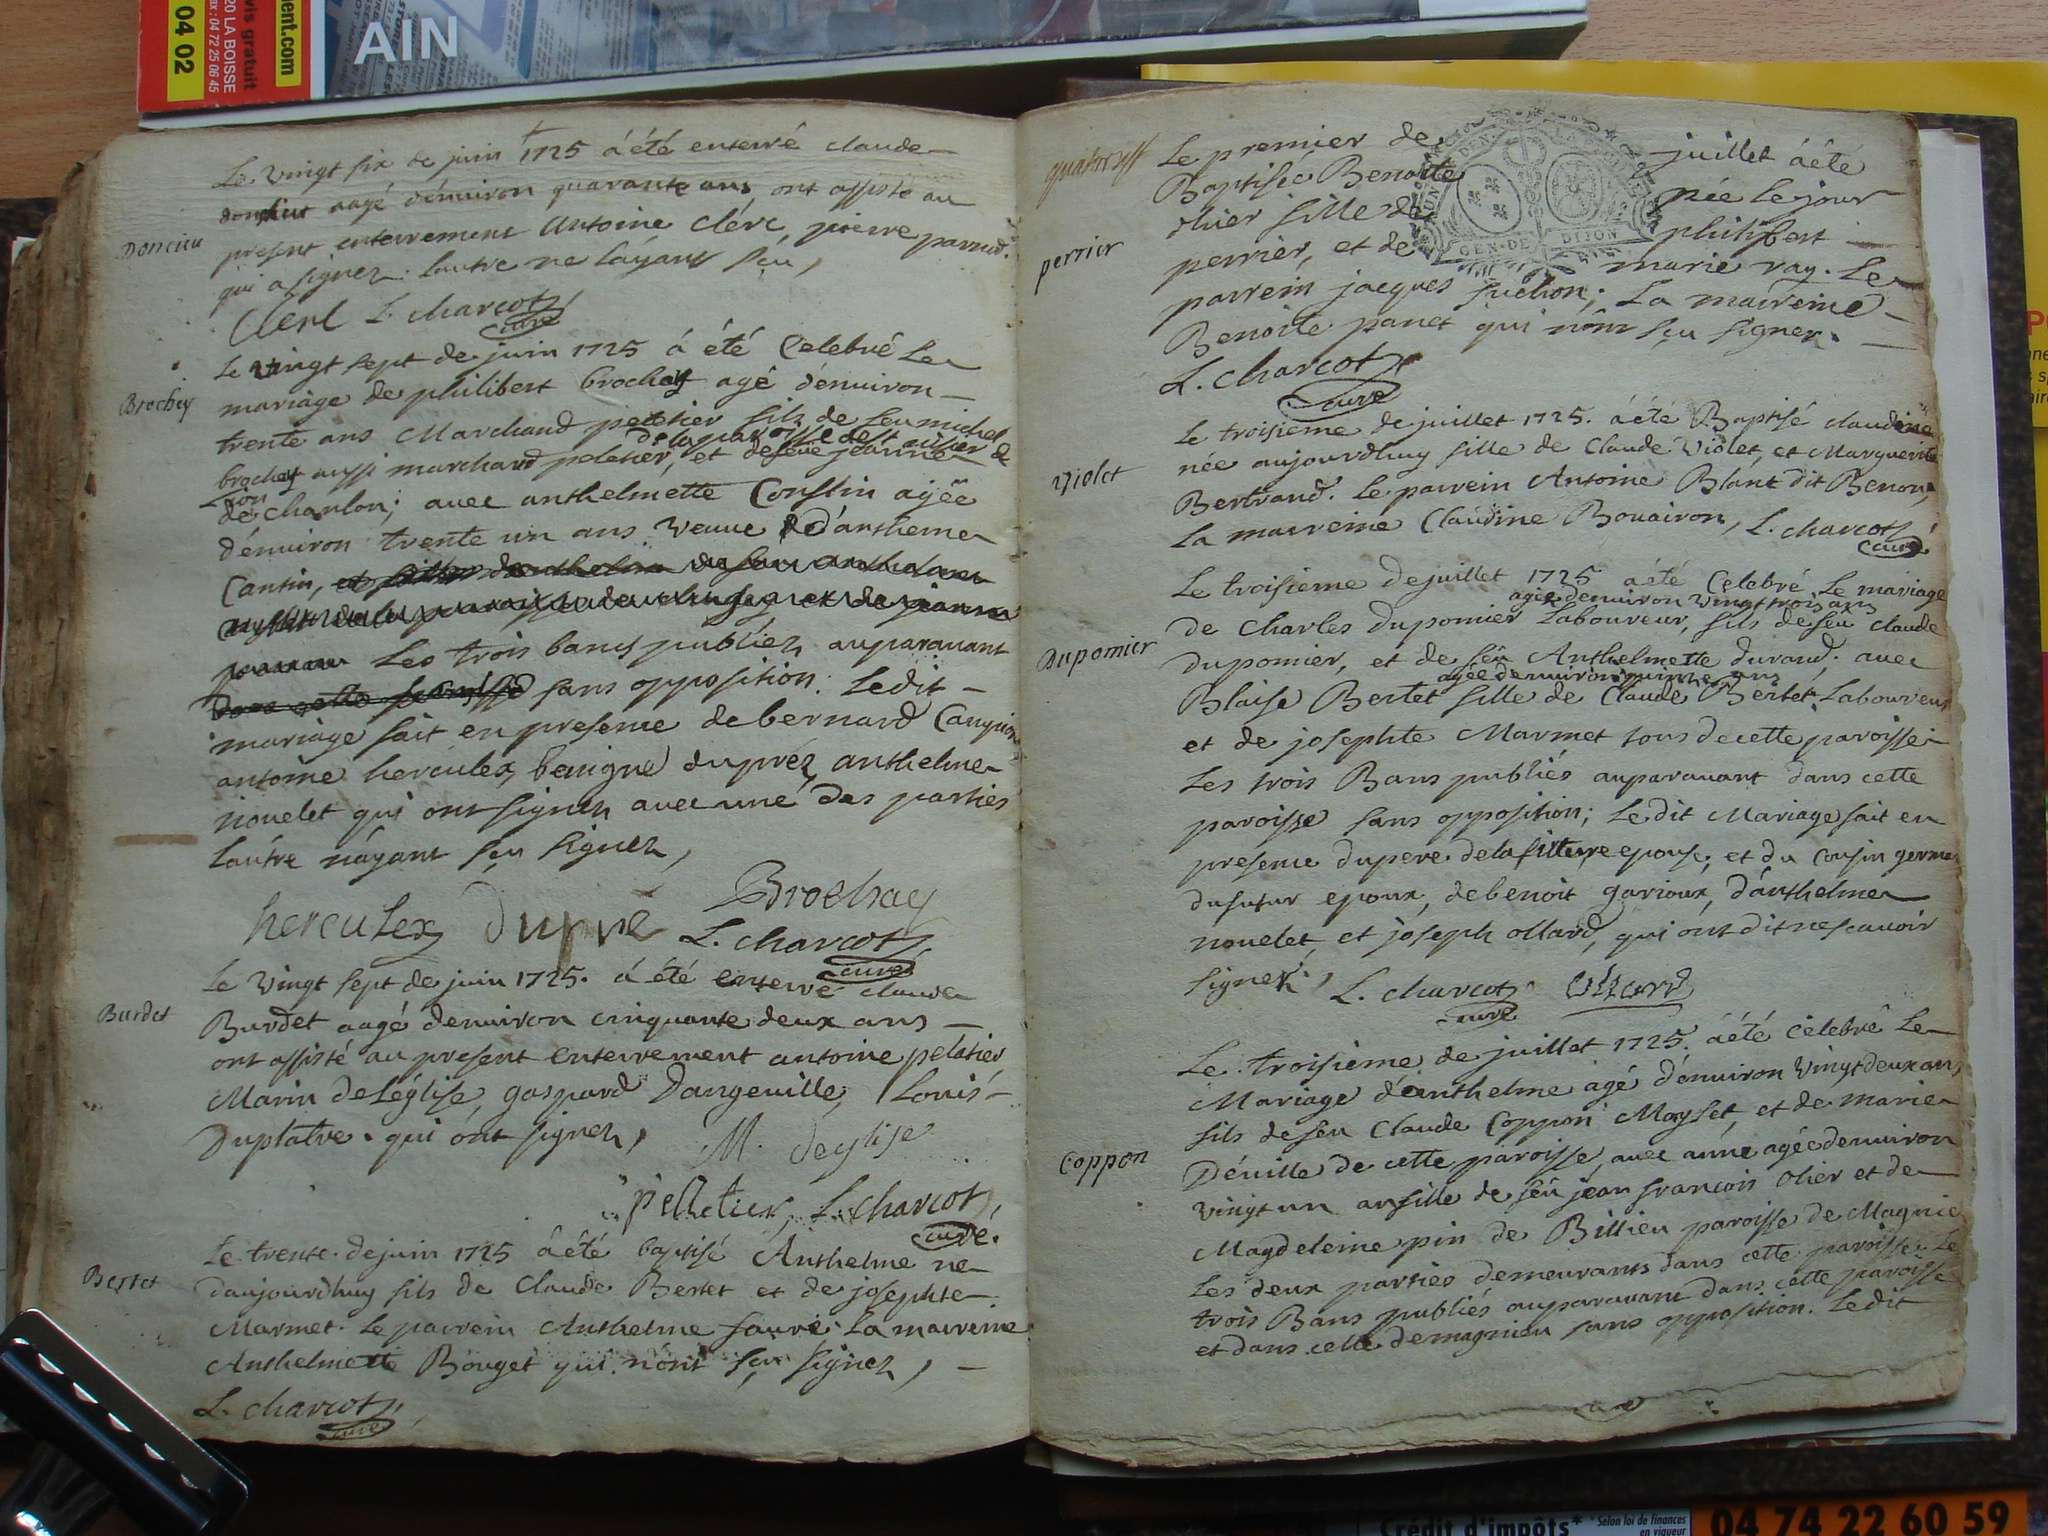 04 02
20 LA BOISSE
Fax : 04 72 25 06 45
vis gratuit
ent.com
AIN
Le vingt six de juin 1725 á été enterré claude
doncieu aagé dénuiron quarante ans, ont assisté au
present enterrement Antoine clérc, pierre
qui a signez. lautre ne layant sçu,
Doncieu
Clerc L. charcot
curé
Le vingt sept de juin 1725 á été Celebré Le
mariage de philibert brochey agé dénuiron
Brochey
trente ans Marchand peletier fils de feu michel
de la paroisse de st nisier de
brochey aussi marchand peletier, et de feue jeanne
Lyon
de chanlon; auec anthelmette Conslin agée
dénuiron trente un ans veuue d'antheme
Cantin,
Les trois bancs publiez auparauant
sans opposition. Ledit
mariage fait en presense de bernard Canquin
antoine herculez, benigne dupréz anthelme
nouelet qui ont signez auec uné des parties
lautre náyant sçu signez,
herculez Dupré Brochay
L. charcot
curé
Le vingt sept de juin 1725. á été enterré claude
Burdet
Burdet aagé denuiron cinquante deux ans
ont assisté au present enterrement antoine peletier
Marin deLéglise, gaspard Dangeuille, Louis
Duplatre. qui ónt signez,
M. deglise
pelletier, L. charcot,
curé.
Le trente de juin 1725 áété baptisé Anthelme né
Bertet
daujourdhuy fils de Claude Bertet et de josephte
Marmet. Le parrein Anthelme fauré. La marreine
Anthelmette Bouget qui nónt sçu signez,
L. charcot,
curé
Le premier de juillet áété
Baptisée Benoite née le jour
dhier fille de philibert
perrier
perrier, et de marie ray. Le
parrein jacques suchon; La marreine
Benoite panet qui nónt sçu signer.
GEN. DE DIJON
L. charcot
curé
Le troisieme de juillet 1725. áété Baptisé claudine
née aujourdhuy fille de Claude Violet, et Marguerite
violet
Bertrand. Le parrein Antoine Blanc dit Benon,
La marreine Claudine Bouairon, L. charcot
curé
Le troisieme de juillet 1725 áété Celebré Le mariage
agée denuiron vingt trois ans
de Charles Dupomier Laboureur, fils de feu claude
Dupomier
dupomier, et de feu Anthelmette durand. auec
agée denuiron quinze ans
Blaise Bertet fille de Claude Bertet Laboureur
et de josephte Marmet tous de cette paroisse
Les trois Bans publiés auparauant dans cette
paroisse sans opposition; Le dit Mariage fait en
presense du pere de la future epouse, et du Cousin germe
du futur epoux, de benoit garioux, d'anthelme
nouelet, et joseph ollard, qui ónt dit ne scauoir
signer,
L. charcot Ollard
curé
Le troisiéme de juillet 1725. áété célebré Le
Mariage déanthelme agé dénuiron vingt deux ans,
fils de feu Claude Coppon Maysset, et de marie
Coppon
Déuille de cette paroisse, auec anne agée denuiron
vingt un an fille de féu jean francois olier et de
Magdeleine pin de Billieu paroisse de Magnie
Les deux parties demeurants dans cette paroisse. Le
trois Bans publiés auparauant dans cette paroisse
et dans celle de magnieu sans opposition. Ledit
Crédit d'impôts*
*Selon loi de finances
en vigueur
04 74 22 60 59